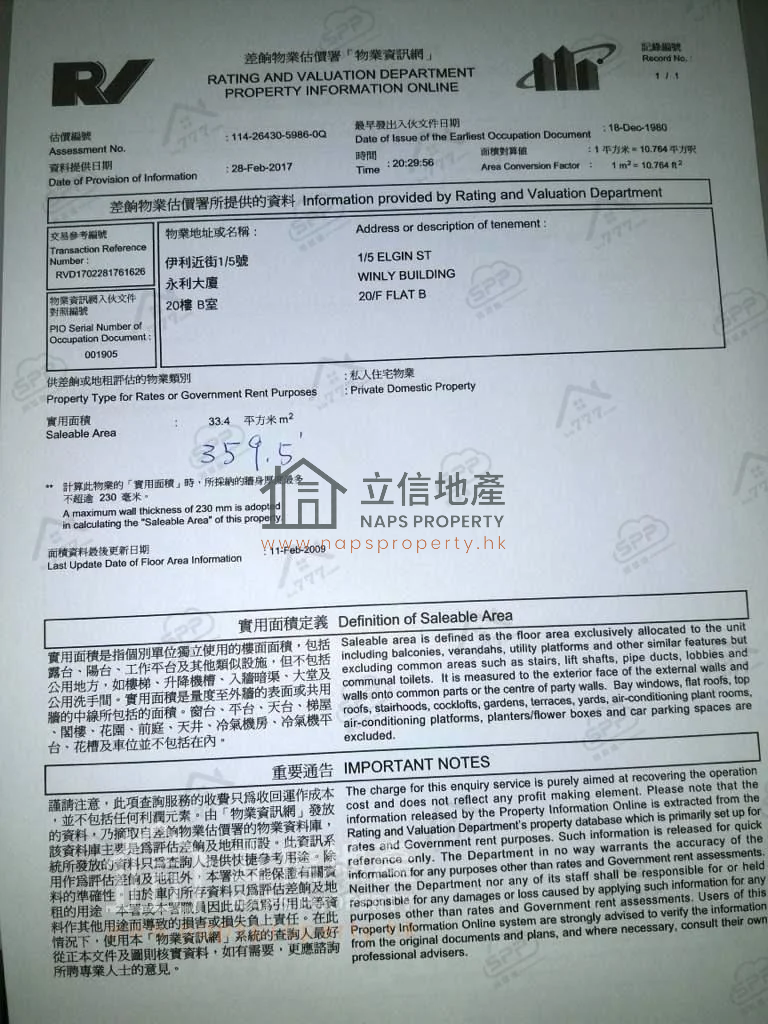 RV
差餉物業估價署「物業資訊網」
RATING AND VALUATION DEPARTMENT
PROPERTY INFORMATION ONLINE
記錄編號
Record No. :
1 / 1
估價編號
Assessment No.
: 114-26430-5986-0Q
最早發出入伙文件日期
Date of Issue of the Earliest Occupation Document
: 18-Dec-1980
資料提供日期
Date of Provision of Information
: 28-Feb-2017
時間
Time
: 20:29:56
面積對算值
Area Conversion Factor
: 1 平方米 = 10.764 平方呎
: 1 m² = 10.764 ft²
差餉物業估價署所提供的資料 Information provided by Rating and Valuation Department
交易參考編號
Transaction Reference
Number :
RVD1702281761626
物業資訊網入伙文件
對照編號
PIO Serial Number of
Occupation Document :
001905
物業地址或名稱 :
伊利近街1/5號
永利大廈
20樓 B室
Address or description of tenement :
1/5 ELGIN ST
WINLY BUILDING
20/F FLAT B
供差餉或地租評估的物業類別
Property Type for Rates or Government Rent Purposes
: 私人住宅物業
: Private Domestic Property
實用面積
Saleable Area
: 33.4 平方米 m²
359.5'
** 計算此物業的「實用面積」時,所採納的牆身厚度最多
不超逾 230 毫米。
A maximum wall thickness of 230 mm is adopted
in calculating the "Saleable Area" of this property.
立信地產
NAPS PROPERTY
www.napsproperty.hk
面積資料最後更新日期
Last Update Date of Floor Area Information
: 11-Feb-2009
實用面積定義 Definition of Saleable Area
實用面積是指個別單位獨立使用的樓面面積,包括
露台、陽台、工作平台及其他類似設施,但不包括
公用地方,如樓梯、升降機槽、入牆暗渠、大堂及
公用洗手間。實用面積是量度至外牆的表面或共用
牆的中線所包括的面積。窗台、平台、天台、梯屋
、閣樓、花園、前庭、天井、冷氣機房、冷氣機平
台、花槽及車位並不包括在內。
Saleable area is defined as the floor area exclusively allocated to the unit
including balconies, verandahs, utility platforms and other similar features but
excluding common areas such as stairs, lift shafts, pipe ducts, lobbies and
communal toilets. It is measured to the exterior face of the external walls and
walls onto common parts or the centre of party walls. Bay windows, flat roofs, top
roofs, stairhoods, cocklofts, gardens, terraces, yards, air-conditioning plant rooms,
air-conditioning platforms, planters/flower boxes and car parking spaces are
excluded.
重要通告 IMPORTANT NOTES
謹請注意,此項查詢服務的收費只為收回運作成本
,並不包括任何利潤元素。由「物業資訊網」發放
的資料,乃摘取自差餉物業估價署的物業資料庫,
該資料庫主要是為評估差餉及地租而設。此資訊系
統所發放的資料只為查詢人提供快捷參考用途。除
用作為評估差餉及地租外,本署並不能保證有關資
料的準確性。由於庫內所存資料只為評估差餉及地
租的用途,本署或本署職員因此毋須為引用此等資
料作其他用途而導致的損害或損失負上責任。在此
情況下,使用本「物業資訊網」系統的查詢人最好
從正本文件及圖則核實資料,如有需要,更應諮詢
所聘專業人士的意見。
The charge for this enquiry service is purely aimed at recovering the operation
cost and does not reflect any profit making element. Please note that the
information released by the Property Information Online is extracted from the
Rating and Valuation Department's property database which is primarily set up for
rates and Government rent purposes. Such information is released for quick
reference only. The Department in no way warrants the accuracy of the
information for any purposes other than rates and Government rent assessments.
Neither the Department nor any of its staff shall be responsible for or held
responsible for any damages or loss caused by applying such information for any
purposes other than rates and Government rent assessments. Users of this
Property Information Online system are strongly advised to verify the information
from the original documents and plans, and where necessary, consult their own
professional advisers.